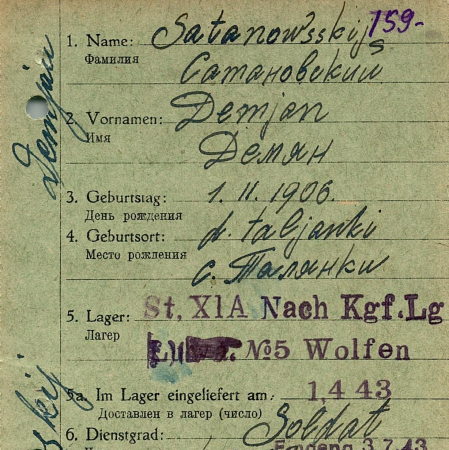 159-
1. Name: Satanowsskij
Фамилия Сатановский
2. Vornamen: Demjan
Имя Демян
3. Geburtstag: 1. 11. 1906.
День рождения
4. Geburtsort: d. taljanki
Место рождения с. Талянки
5. Lager: St. X1A Nach Kgf.Lg
Лагер №5 Wolfen
5a. Im Lager eingeliefert am: 1,4 43
Доставлен в лагер (число)
6. Dienstgrad: Soldat
Eingang 3.7.43
Demjan
skij